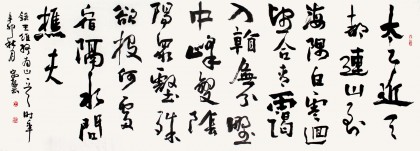 太乙近天
都連山到
海隅白雲迴
望合青靄
入看無分野
中峰變陰
晴眾壑殊
欲投何處
宿隔水問
樵夫
錄王維終南山
辛卯秋月